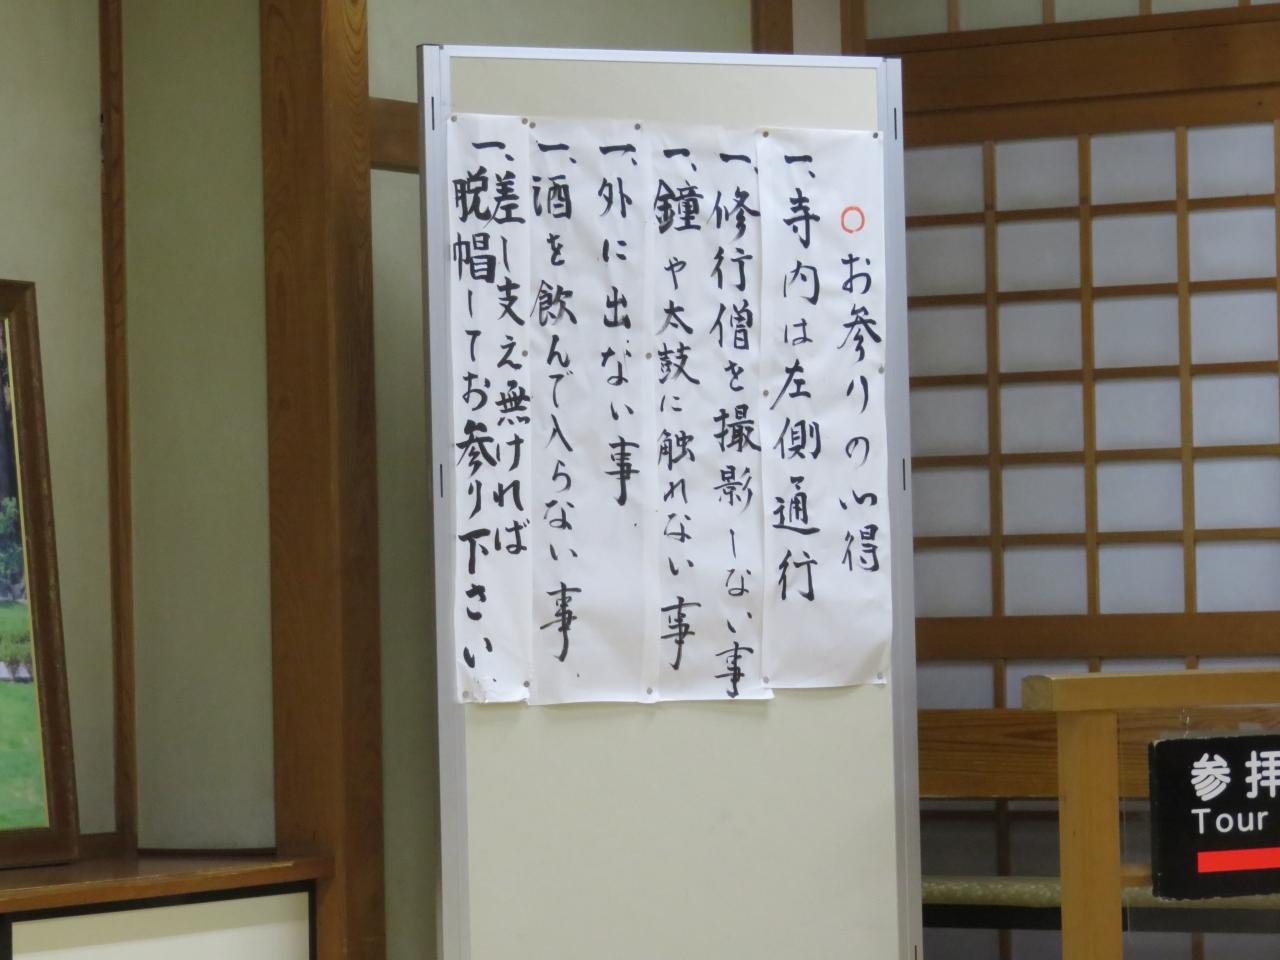 ○お参りの心得
一、寺内は左側通行
一、修行僧を撮影しない事
一、鐘や太鼓に触れない事
一、外に出ない事
一、酒を飲んで入らない事
一、差し支え無ければ
脱帽してお参り下さい
参拝
Tour